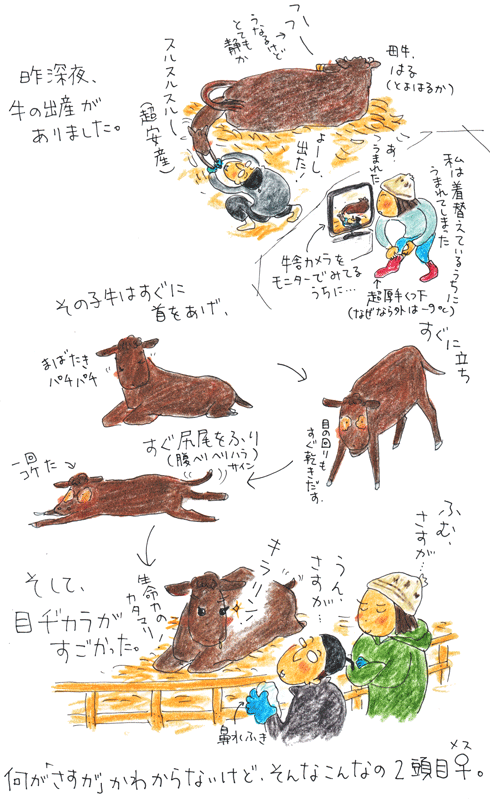 昨深夜、
牛の出産が
ありました。
フー
フー
うなるけど
とても静か
母牛、
はる
(とまはるか)
スルスルスルー、
(超安産)
よーし、
出た!
あ、
うまれた
私は着替えているうちに
うまれてしまった
牛舎カメラを
モニターでみてる
うちに…
超厚手くつ下
(なぜなら外は-9℃)
その子牛はすぐに
首をあげ、
まばたき
パチパチ
すぐに立ち
目の回りも
すぐ乾きだす。
すぐ尻尾をふり
(腹ペリペリハラ)
サイン
一回
コケた
そして、
目ヂカラが
すごかった。
生命力の
カタマリ
キラリーン
うん、
さすが…
ふむ、
さすが…
鼻水ふき
何が「さすが」かわからないけど、そんなこんなの2頭目♀。
メス